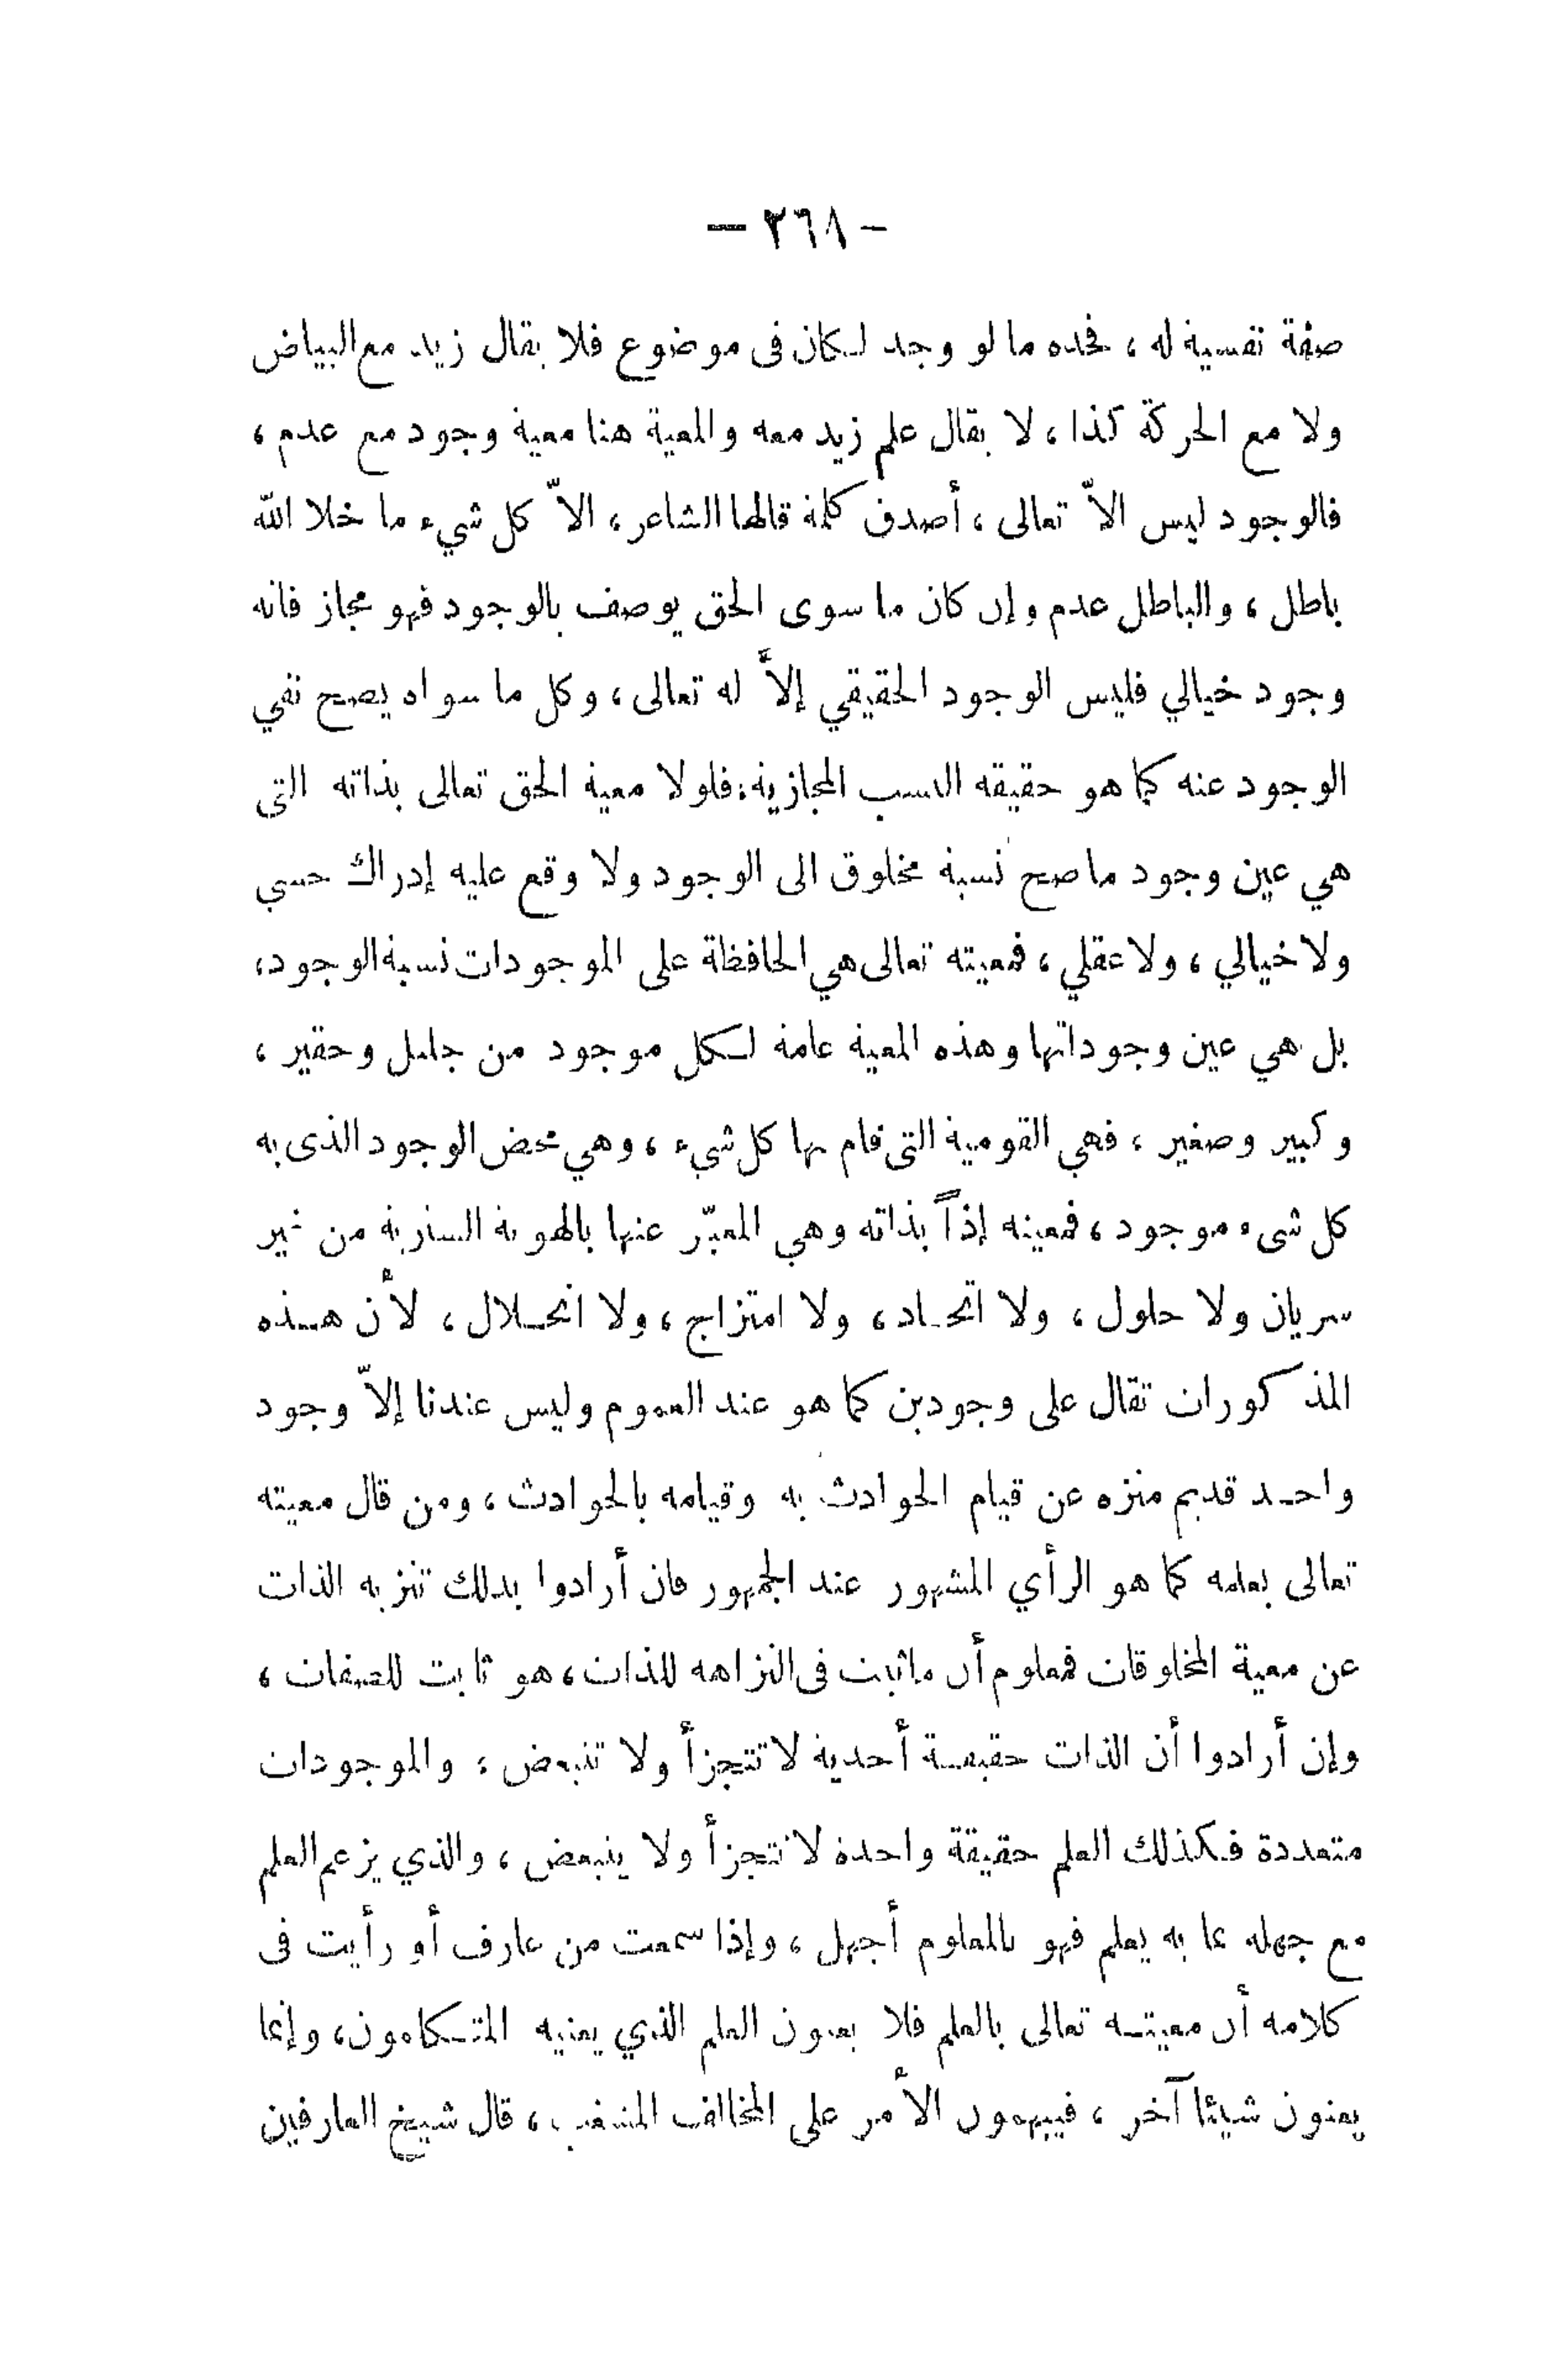 - ٢٦٨ -
صفة نفسية له ، فحده ما لو وجد لكان فى موضوع فلا يقال زيد مع البياض
ولا مع الحركة كذا ، لا يقال علم زيد معه والمعية هنا معية وجود مع عدم ،
فالوجود ليس الاّ تعالى ، أصدق كلمة قالها الشاعر ، الاّ كل شيء ما خلا الله
باطل ، والباطل عدم وإن كان ما سوى الحق يوصف بالوجود فهو مجاز فانه
وجود خيالي فليس الوجود الحقيقي إلاَّ له تعالى ، وكل ما سواه يصح نفي
الوجود عنه كما هو حقيقة النسب المجازية ؛ فلولا معية الحق تعالى بذاته التى
هي عين وجود ما صح نسبة مخلوق الى الوجود ولا وقع عليه إدراك حسي
ولا خيالي ، ولا عقلي ، فمعيته تعالى هي الحافظة على الموجودات نسبة الوجود ،
بل هي عين وجوداتها وهذه المعية عامة لكل موجود من جليل وحقير ،
وكبير وصغير ، فهي القومية التى قام بها كل شيء ، وهي محض الوجود الذى به
كل شىء موجود ، فمعيته إذاً بذاته وهي المعبّر عنها بالهوية السارية من غير
سريان ولا حلول ، ولا اتحاد ، ولا امتزاج ، ولا انحلال ، لأن هذه
المذكورات تقال على وجودين كما هو عند العموم وليس عندنا إلاّ وجود
واحد قديم منزه عن قيام الحوادث به وقيامه بالحوادث ، ومن قال معيته
تعالى بعلمه كما هو الرأي المشهور عند الجمهور فان أرادوا بذلك تنزيه الذات
عن معية المخلوقات فمعلوم أن ما ثبت فى النزاهة للذات ، هو ثابت للصفات ،
وإن أرادوا أن الذات حقيقة أحدية لا تتجزأ ولا تتبعض ؛ والموجودات
متعددة فكذلك العلم حقيقة واحدة لا تتجزأ ولا يتبعض ، والذي يزعم العلم
مع جهله بما به يعلم فهو بالمعلوم أجهل ، وإذا سمعت من عارف أو رأيت فى
كلامه أن معيته تعالى بالعلم فلا يعنون العلم الذي يعنيه المتكلمون ، وإنما
يعنون شيئا آخر ، فيبهمون الأمر على المخالف ، قال شيخ العارفين